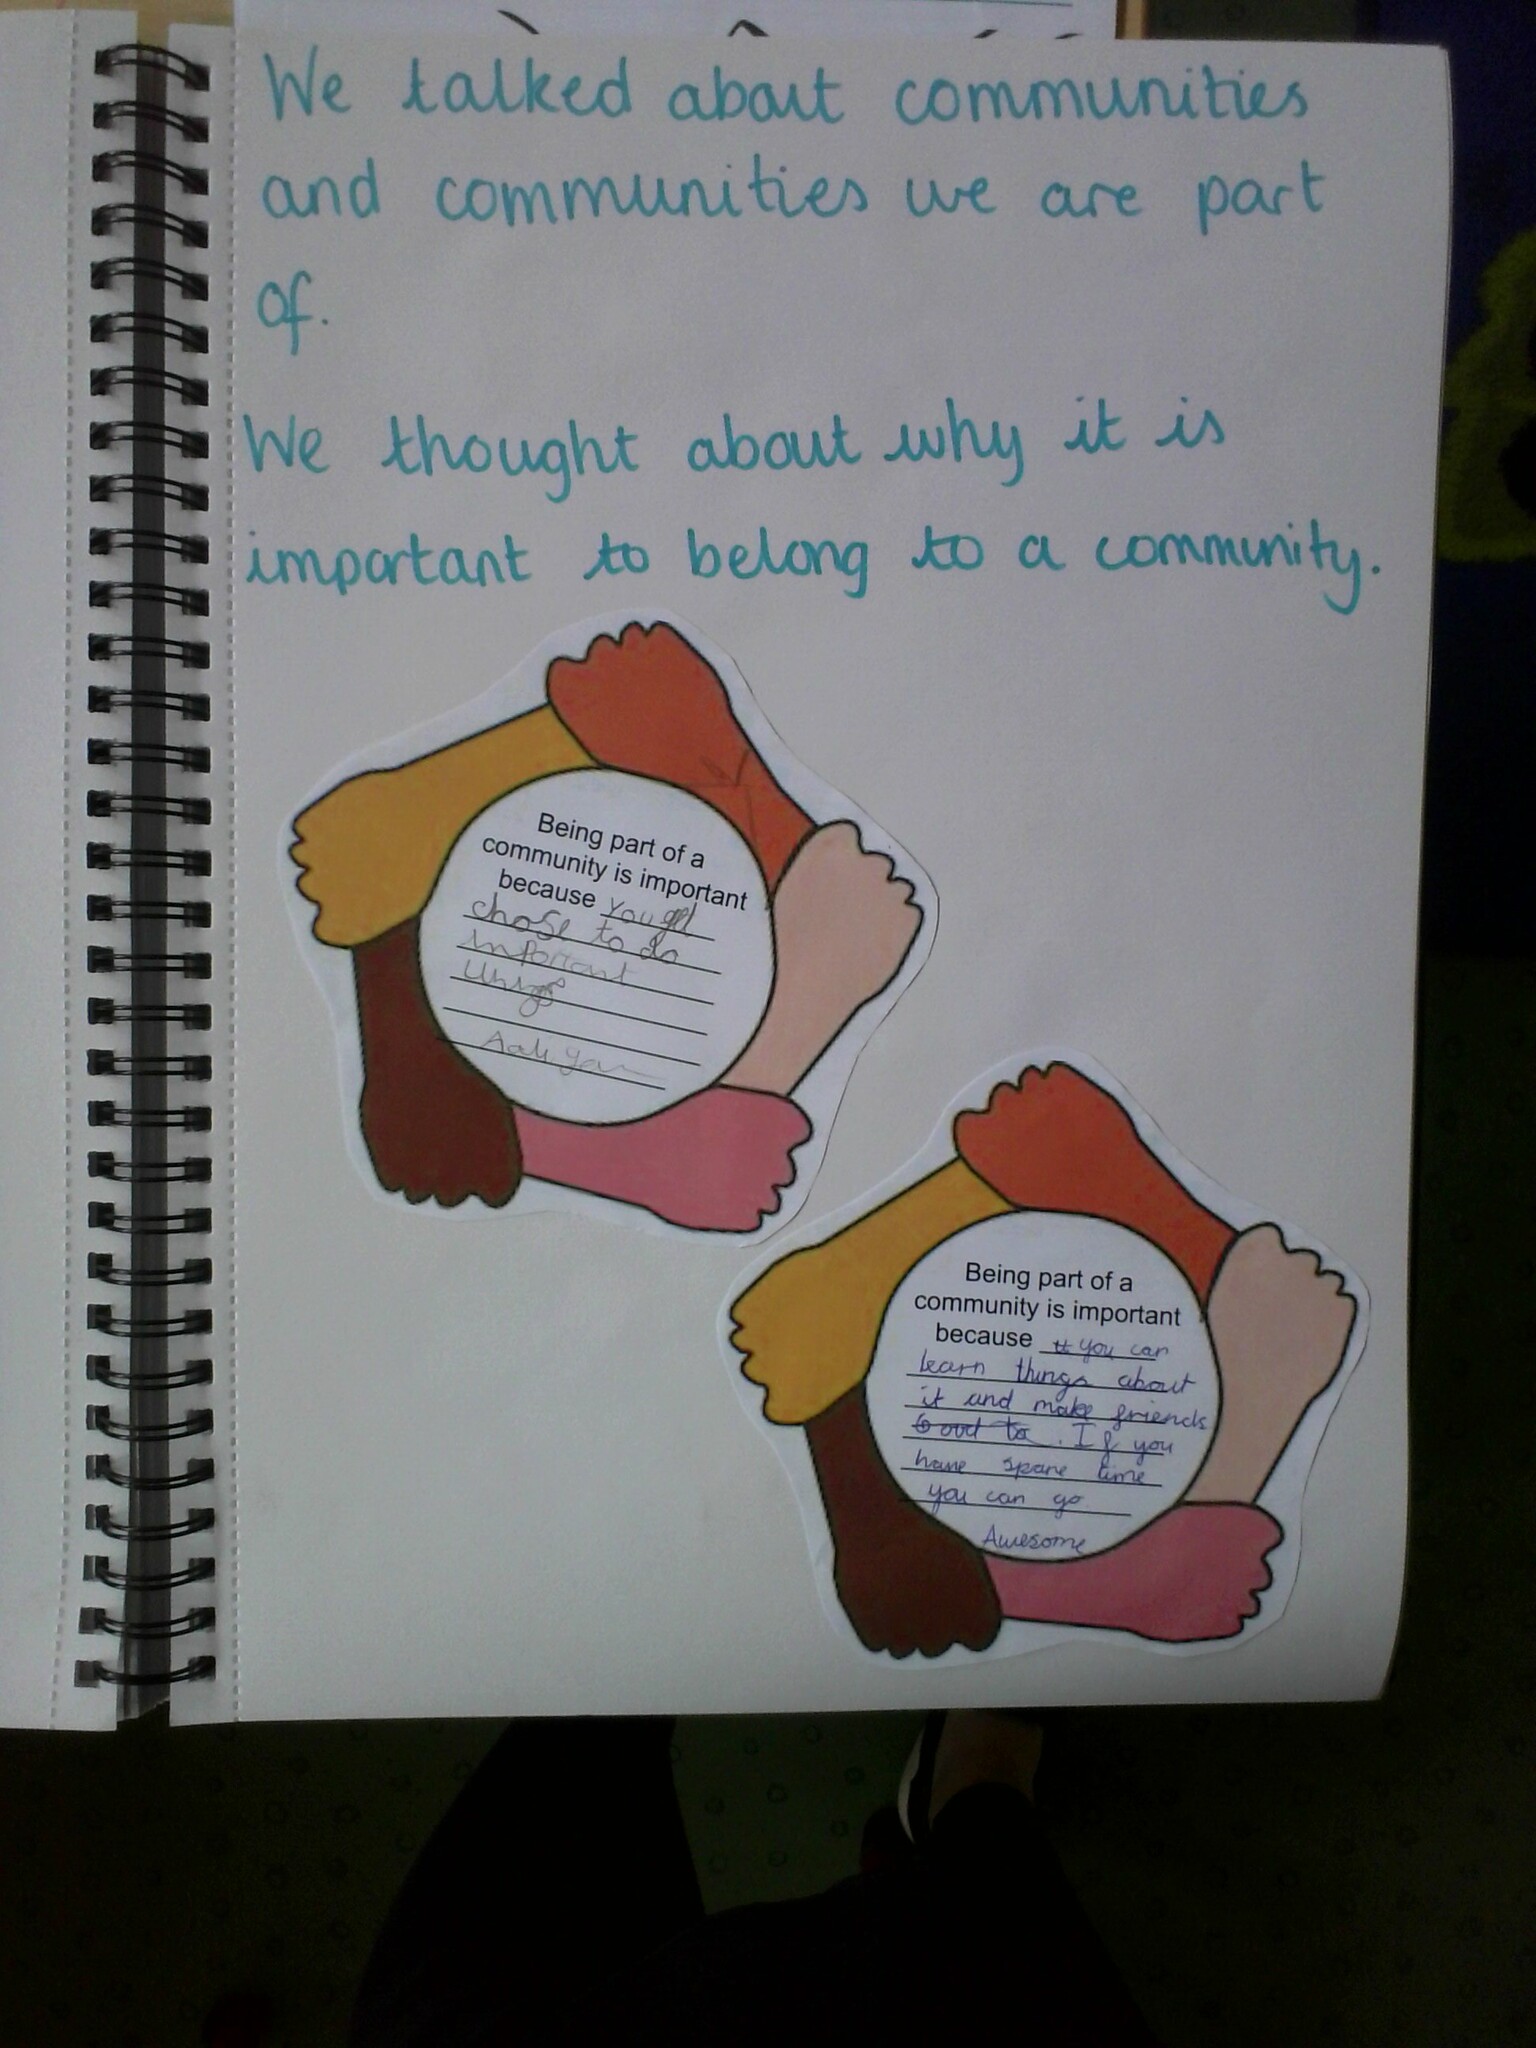 We talked about communities
and communities we are part
of.
We thought about why it is
important to belong to a community.
Being part of a
community is important
because you get
chose to do
important
things
Being part of a
community is important
because you can
learn things about
it and make friends
. If you
have spare time
you can go
Awesome